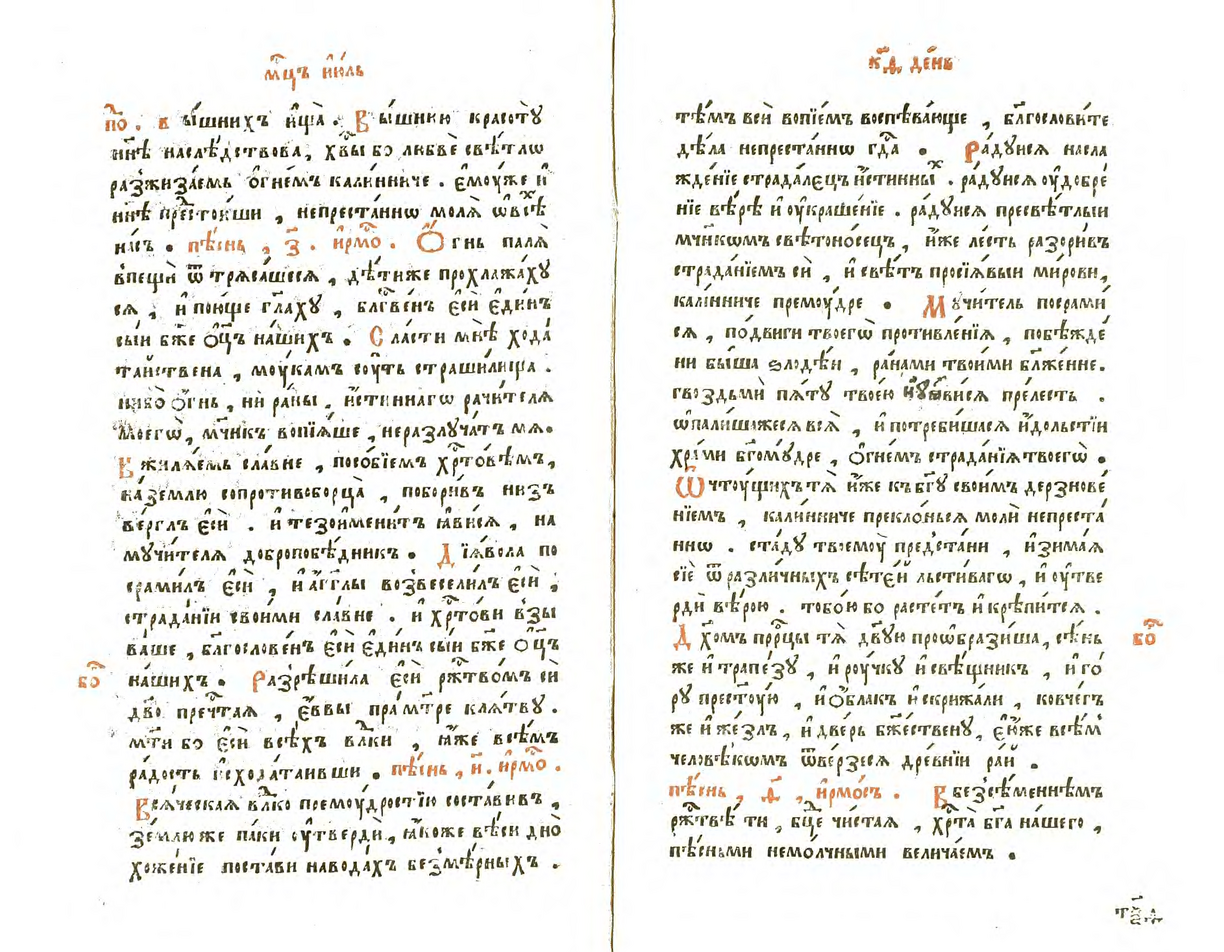 мц҃ъ і҆ю́ль
по̑. в вы́шнихъ ищѧ̀. Вы́шнюю красотꙋ̀
ны́нѣ наслѣ́дствова, хв҃ы бо любвѐ свѣ́тлѡ
разжиза́емь ѻ҆гне́мъ кали́нниче. є҆мꙋ́же и҆
ны́нѣ прⷭ҇тоѧ́ши, непреста́ннѡ молѧ̀ ѡ҆ всѣⷯ
на́съ. пѣ́снь, з҃. і҆рмо́. Ѻ҆́гнь палѧ̀
в пещѝ ѿтрѧса́шесѧ, дѣ́тиже прохлажа́хꙋ
сѧ, и҆ пою́ще гл҃ахꙋ, бл҃гве́нъ є҆сѝ є҆ди́нъ
сы́и бж҃е ѻ҆ц҃ъ на́шихъ. Сла́сти мнѣ̀ хода́
та́йствена, мꙋ́камъ сꙋ́ть страши́лища.
нибо̀ ѻ҆́гнь, нѝ ра́ны, и҆́стиннагѡ рачи́телѧ
моегѡ̀, мч҃нкъ вопїѧ́ше, неразлꙋча́тъ мѧ.
В жилѧ́емь сла́вне, посо́бїемъ хрⷭ҇то́вѣмъ,
на́ землю сопротивобо́рца, побори́въ ни́зъ
ве́рглъ є҆сѝ. и҆ тезоимени́тъ ꙗ҆ви́сѧ, на
мꙋчи́телѧ добропобѣ́дникъ. Дїѧ́вола по
срами́лъ є҆сѝ, и҆ а҆́гг҃лы возвесели́лъ є҆сѝ,
страда́нїи свои́ми сла́вне. и҆ хрⷭ҇то́ви взы
ва́ше, бл҃гослове́нъ є҆сѝ є҆ди́нъ сы́и бж҃е ѻ҆ц҃ъ
на́шихъ. Разрѣши́ла є҆сѝ рж҃тво́мъ си
бо̑
дв҃о преч҇таѧ, є҆́ввы пра́мт҃ре клѧ́твꙋ.
мт҃и бо є҆сѝ всѣ́хъ влⷣки, ꙗ҆́же всѣ́мъ
ра́дость и҆схода́таивши. пѣ́снь, и҃. і҆рмо́.
Всѧ́ческаѧ влⷣко премꙋ́дростїю соста́вивъ,
зе́млюже па́ки ᲂу҆твердѝ, ꙗ҆́коже вѣ́си дно̀
хоже́нїе поста́ви навода́хъ безмѣ́рныхъ.
к҃д де́нь
тѣ́мъ всѝ вопїе́мъ воспѣва́юще, бл҃гослови́те
дѣ́ла непреста́ннѡ гдⷭ҇а. Ра́дꙋисѧ насла
жде́нїе страда́лецъ и҆́стинныⷯ. ра́дꙋисѧ ᲂу҆добре́
нїе вѣ́рѣ и҆ ᲂу҆краше́нїе. ра́дꙋисѧ пресвѣ́тлыи
мч҃нкѡмъ свѣтоно́сецъ, и҆́же ле́сть разори́въ
страда́нїемъ сѝ, и҆ свѣ́тъ просїѧ́выи ми́рови,
кали́нниче премꙋ́дре. Мꙋчи́тель посрами́
сѧ, по́двиги твоегѡ̀ противле́нїѧ, побѣжде́
ни бы́ша ѕлодѣ́и, ра́нами твои́ми бл҃же́нне.
гвоздьмѝ пѧтꙋ̀ твое́ю ꙗ҆зви́сѧ пре́лесть.
ѡ҆пали́шажесѧ всѧ̀, и҆ потреби́шасѧ и҆́дольстїи
хра́ми бг҃омꙋ́дре, ѻ҆гне́мъ страда́нїѧ твоегѡ̀.
Ѿ чтꙋ́щихъ тѧ̀ и҆́же къ бг҃ꙋ свои́мъ дерзнове́
нїемъ, кали́нниче прекло́ньсѧ молѝ непреста́
ннѡ. ста́дꙋ твоемꙋ̀ предста́ни, и҆зима́ѧ
сїѐ ѿ разли́чныхъ сѣте́й льсти́вагѡ, и҆ ᲂу҆тве
рдѝ вѣ́рою. тобо́ю бо расте́тъ и҆ крѣ́питсѧ.
Дх҃омъ прⷪ҇рцы тѧ̀ дв҃ꙋю проѡбрази́ша, сѣ́нь
бо̑
же и҆ трапе́зꙋ, и҆ рꙋ́чкꙋ и҆ свѣ́щникъ, и҆ го́
рꙋ прест҃ꙋ́ю, и҆ ѻ҆́блакъ и҆ скрижа́ли, ковче́гъ
же и҆ же́злъ, и҆ две́рь бж҃е́ственꙋ, є҆ю́же всѣ́мъ
человѣ́кѡмъ ѿве́рзесѧ дре́внїи ра́й.
пѣ́снь, ѳ҃, і҆рмо́съ. В безсѣ́меннѣмъ
рж҃твѣ̀ ти, бц҃е чи́стаѧ, хрⷭ҇та̀ бг҃а на́шего,
пѣ́сньми немо́лчными велича́емъ.